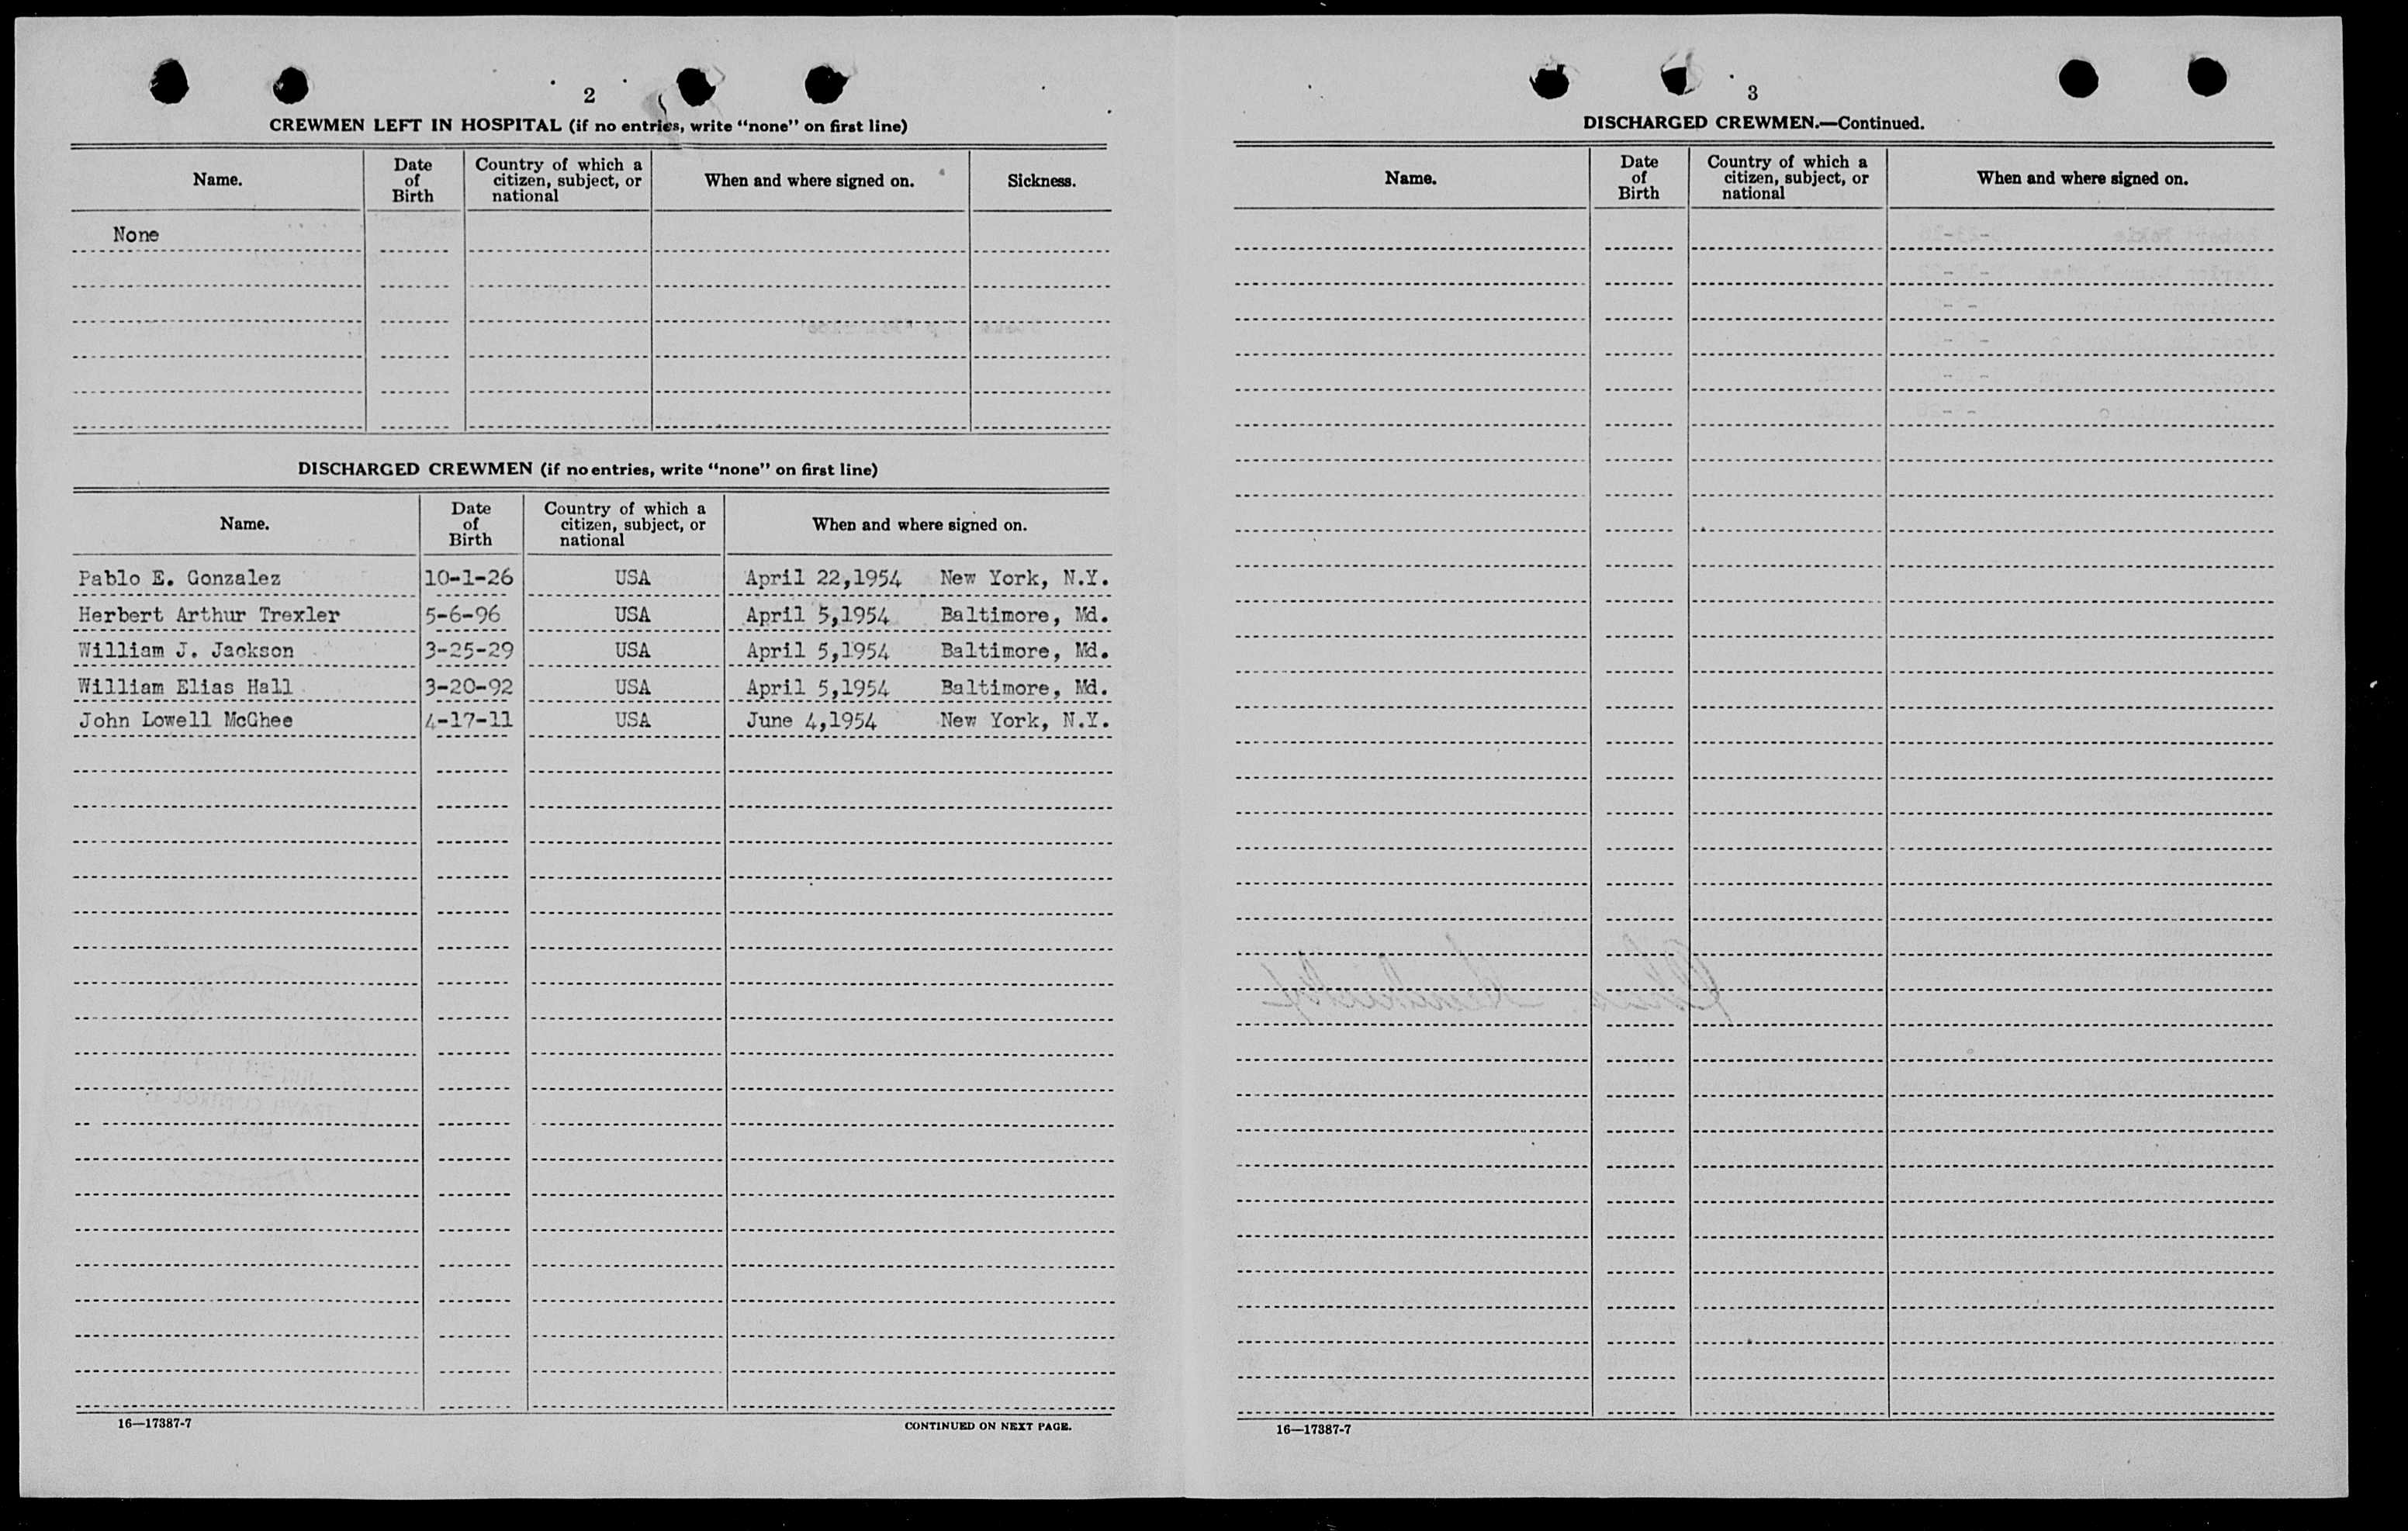 2
CREWMEN LEFT IN HOSPITAL (if no entries, write “none” on first line)
Name. Date of Birth Country of which a citizen, subject, or national When and where signed on. Sickness.
None
DISCHARGED CREWMEN (if no entries, write “none” on first line)
Name. Date of Birth Country of which a citizen, subject, or national When and where signed on.
Pablo E. Gonzalez 10-1-26 USA April 22,1954 New York, N.Y.
Herbert Arthur Trexler 5-6-96 USA April 5,1954 Baltimore, Md.
William J. Jackson 3-25-29 USA April 5,1954 Baltimore, Md.
William Elias Hall 3-20-92 USA April 5,1954 Baltimore, Md.
John Lowell McGhee 4-17-11 USA June 4,1954 New York, N.Y.
16—17387-7 CONTINUED ON NEXT PAGE.
3
DISCHARGED CREWMEN.—Continued.
Name. Date of Birth Country of which a citizen, subject, or national When and where signed on.
16—17387-7